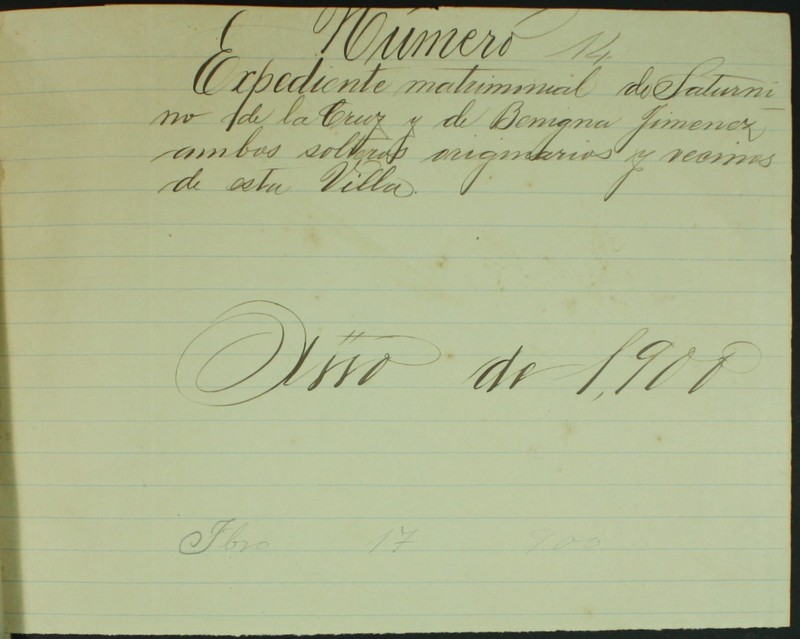 Número 14
Expediente matrimonial de Saturni
no de la Cruz y de Benigna Jimenez
ambos solteros originarios y vecinos
de esta Villa.
Año de 1,900
Fbro 17 900